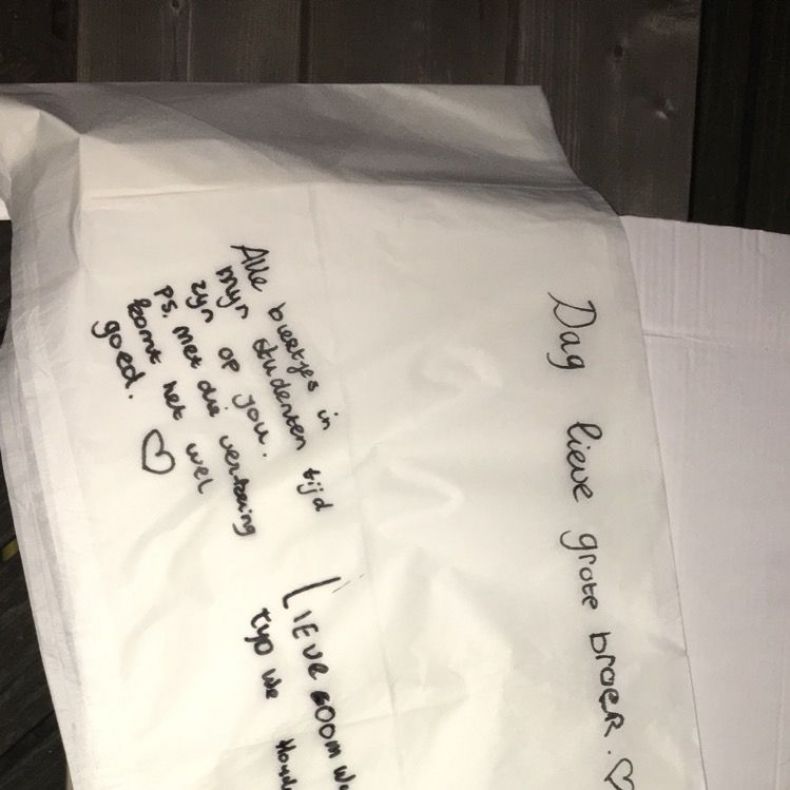 Dag lieve grote broer. ♡
Alle biertjes in
myn studenten tijd
zyn op jou.
PS. met die verkering
komt het wel
goed. ♡
LIEVE
we